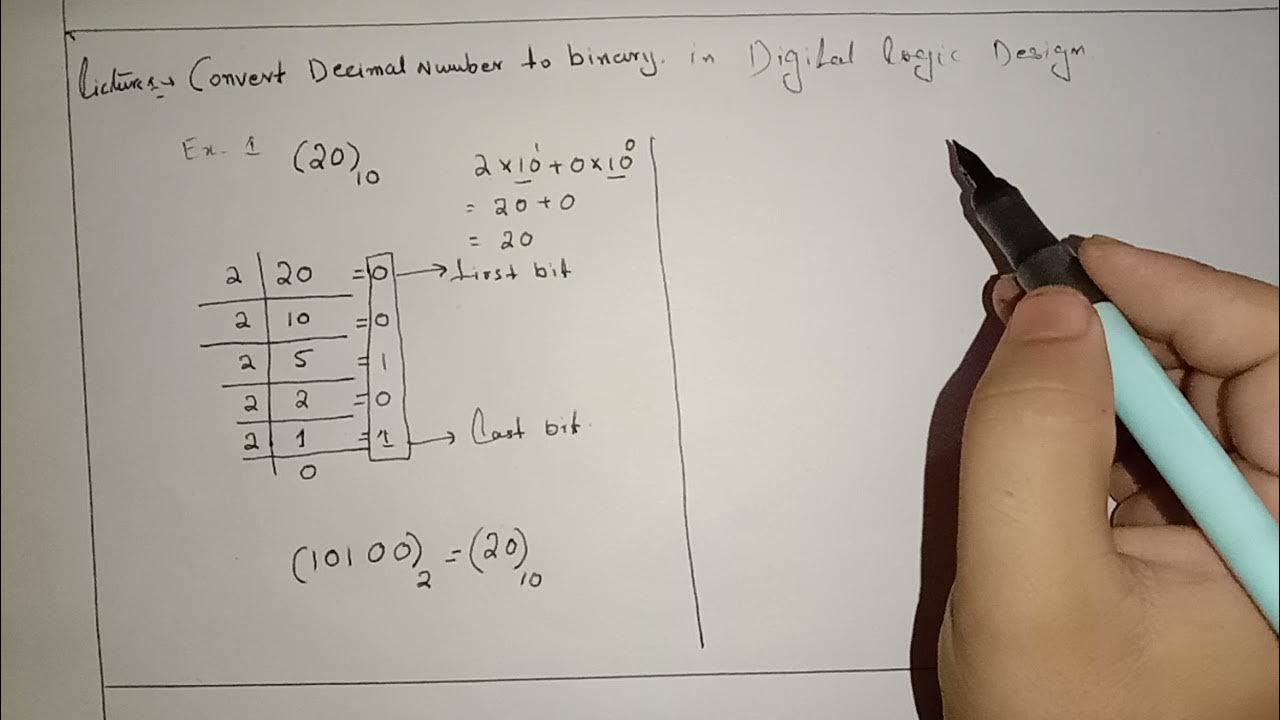 Licture 1 → Convert Decimal Number to binary. in Digital Logic Design
Ex. 1 (20)₁₀
2 × 10¹ + 0 × 10⁰
= 20 + 0
= 20
2 | 20 = 0 → first bit
2 | 10 = 0
2 | 5 = 1
2 | 2 = 0
2 | 1 = 1 → Last bit.
0
(10100)₂ = (20)₁₀